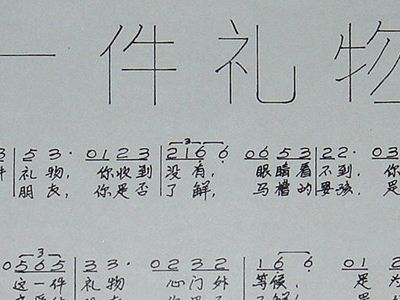 一件礼物
5 3· 0123 2166 0653 22· 03
件 礼物, 你收到 没有, 眼睛看不到, 你
朋友, 你是否 了解, 马槽的婴孩, 是
0565 33· 0232 166 012
这一件 礼物 心门外 等候, 是为